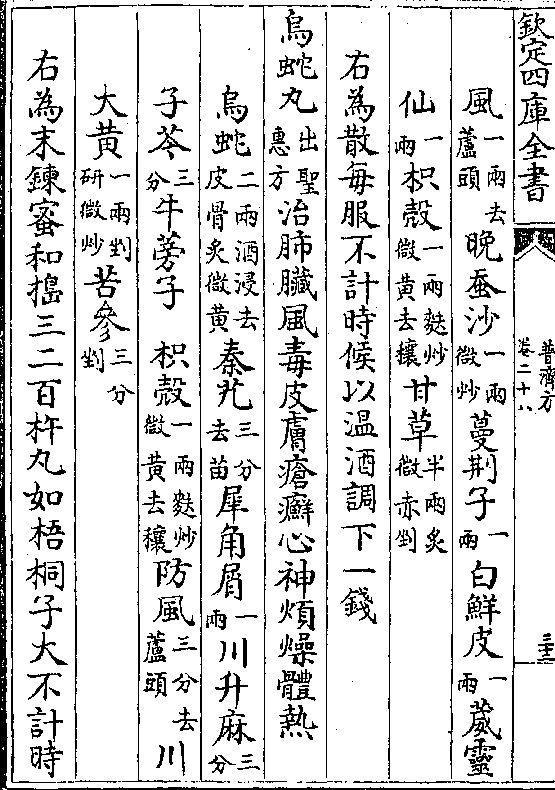 欽定四庫全書
普濟方
卷二十八
三十三
風一兩去蘆頭晚蚕沙一兩微炒蔓荆子一兩白鮮皮一兩葳靈
仙一兩枳殼一兩麩炒微黄去穰甘草半兩炙微赤剉
右為散每服不計時候以温酒調下一錢
烏蛇丸出聖惠方治肺臓風毒皮膚瘡癬心神煩燥體熱
烏蛇二兩酒浸去皮骨炙微黄秦艽三分去苗犀角屑一兩川升麻三分
子芩三分牛蒡子枳殼一兩麩炒微黄去穰防風三分去蘆頭川
大黄一兩剉研微炒苦參三分剉
右為末鍊蜜和搗三二百杵丸如梧桐子大不計時